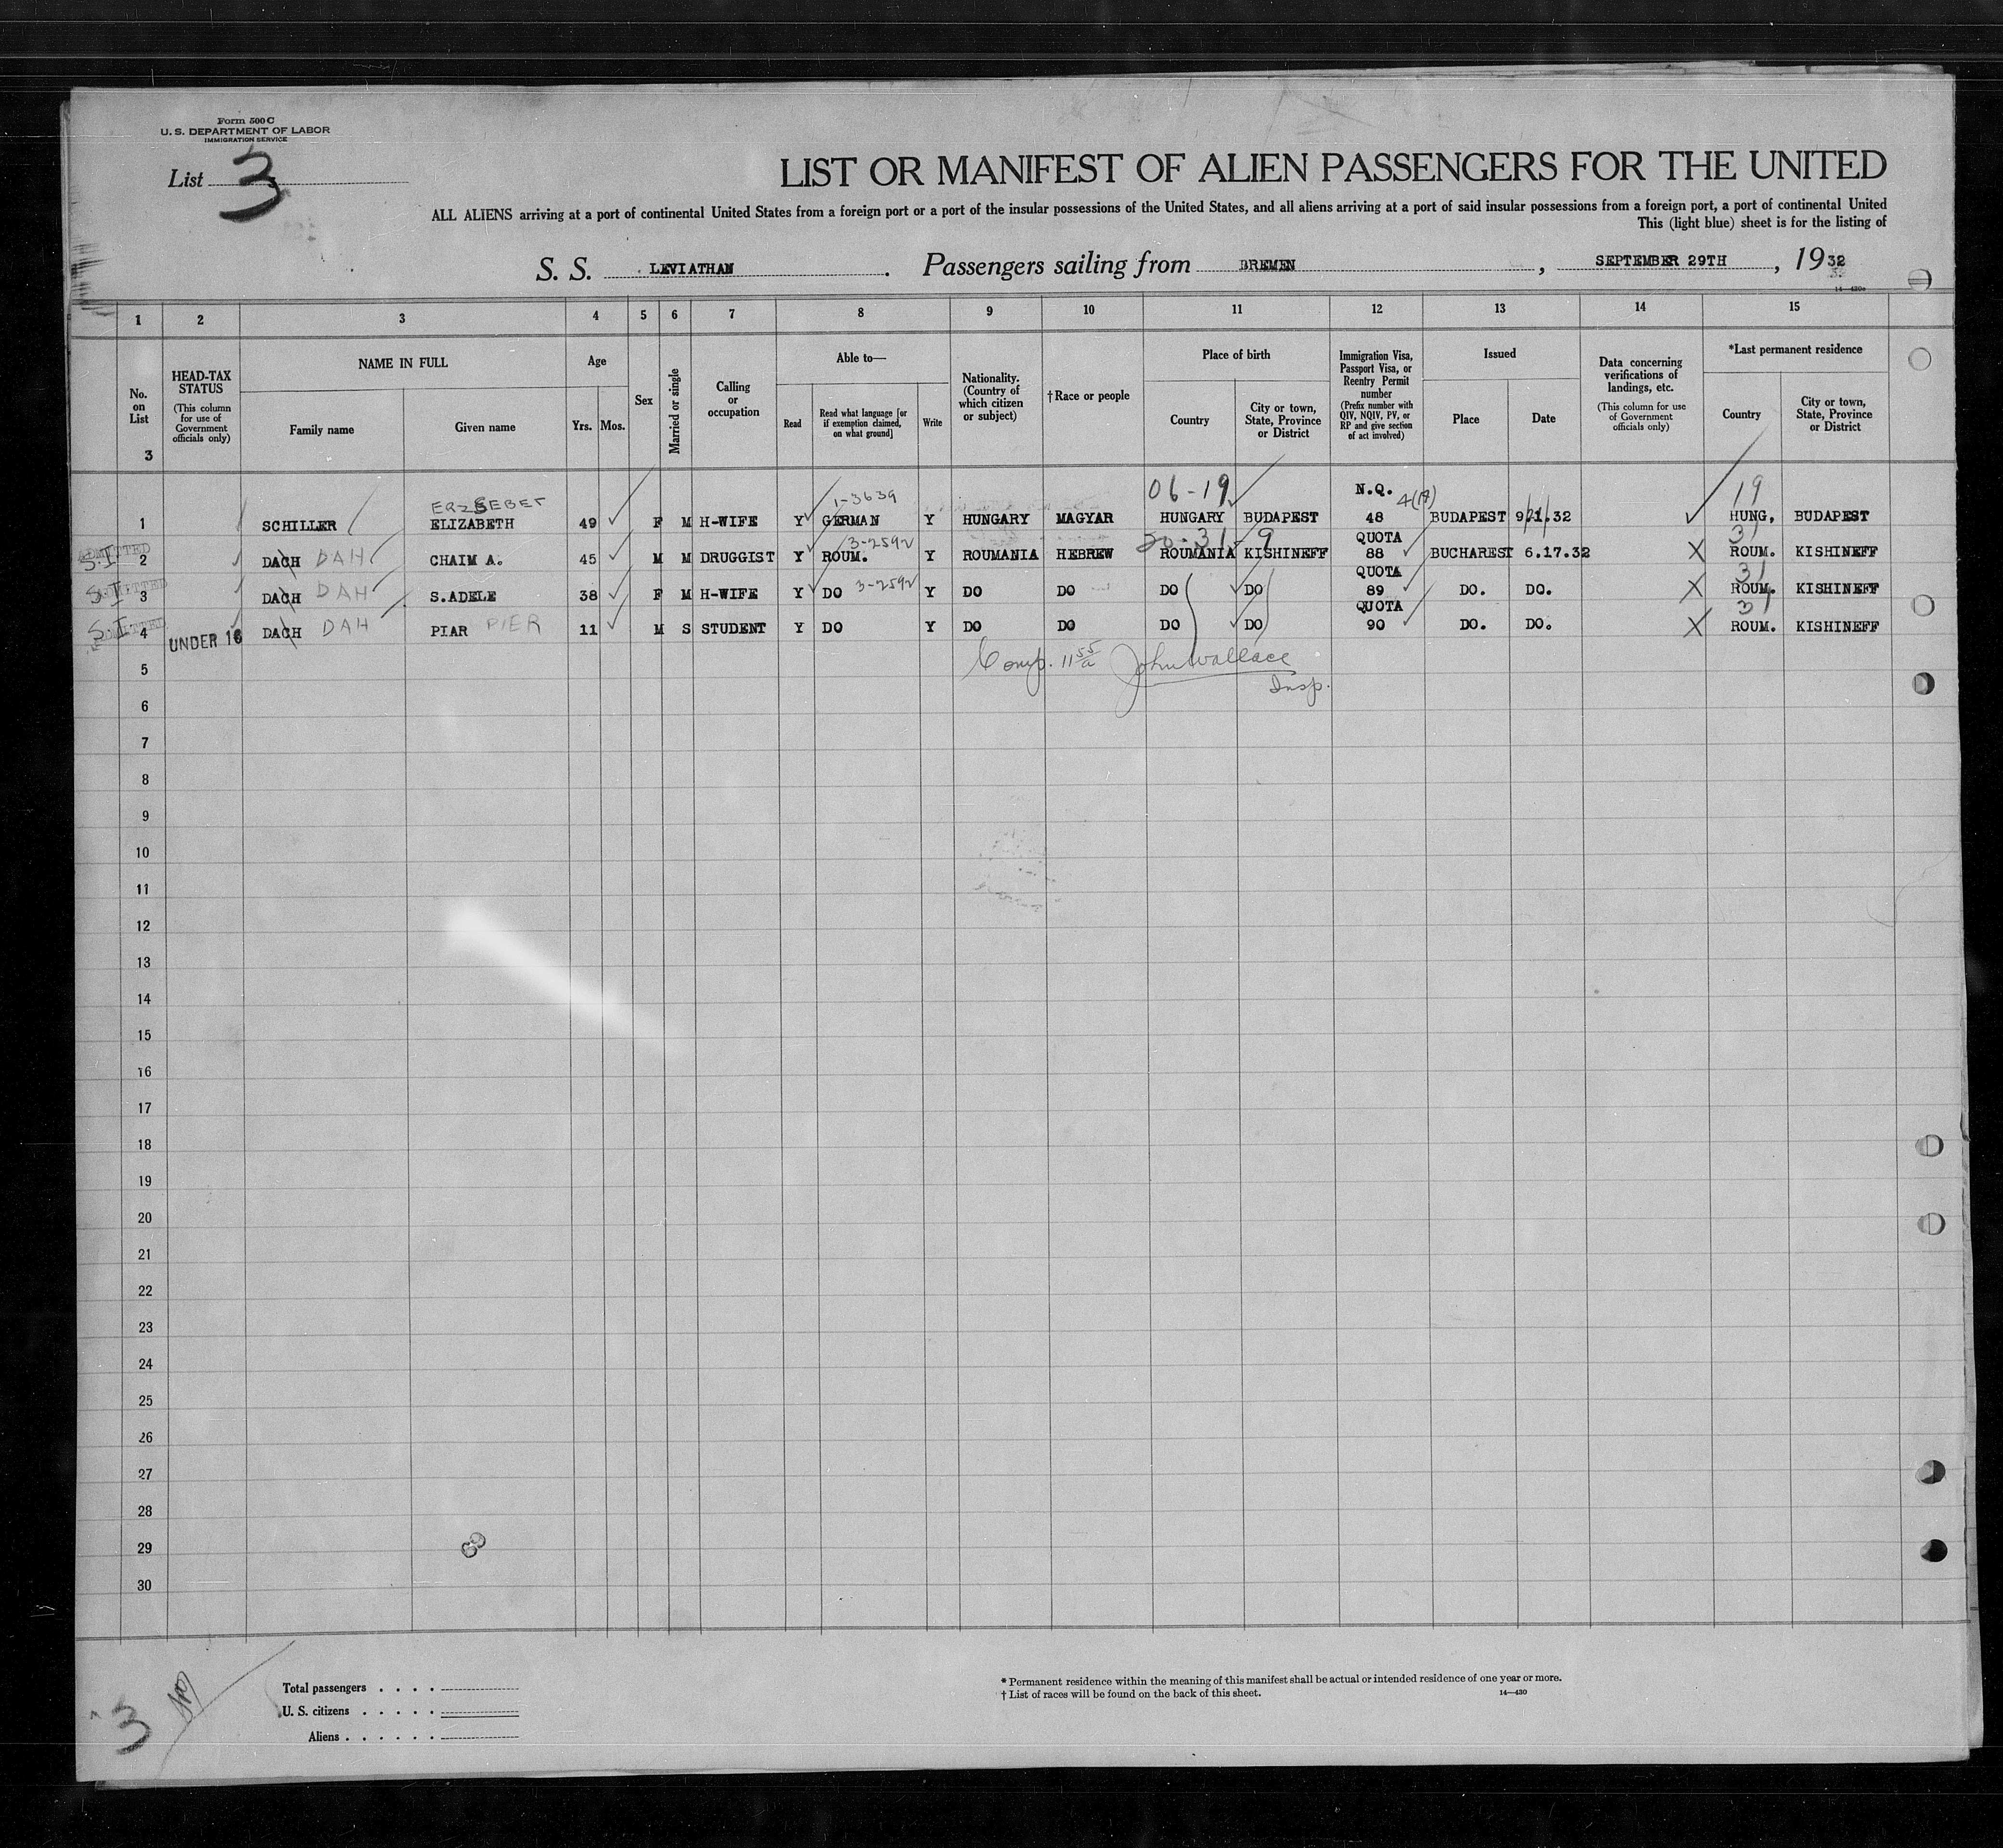 Form 500 C
U. S. DEPARTMENT OF LABOR
IMMIGRATION SERVICE
List 3
LIST OR MANIFEST OF ALIEN PASSENGERS FOR THE UNITED
ALL ALIENS arriving at a port of continental United States from a foreign port or a port of the insular possessions of the United States, and all aliens arriving at a port of said insular possessions from a foreign port, a port of continental United
This (light blue) sheet is for the listing of
S. S. LEVIATHAN. Passengers sailing from BREMEN, SEPTEMBER 29TH, 1932
14—430a
1 2 3 4 5 6 7 8 9 10 11 12 13 14 15
No. on List
3
HEAD-TAX STATUS
(This column for use of Government officials only)
NAME IN FULL
Family name Given name
Age
Yrs. Mos.
Sex
Married or single
Calling or occupation
Able to—
Read Read what language [or if exemption claimed, on what ground] Write
Nationality. (Country of which citizen or subject)
†Race or people
Place of birth
Country City or town, State, Province or District
Immigration Visa, Passport Visa, or Reentry Permit number
(Prefix number with QIV, NQIV, PV, or RP and give section of act involved)
Issued
Place Date
Data concerning verifications of landings, etc.
(This column for use of Government officials only)
*Last permanent residence
Country City or town, State, Province or District
ERZSEBET 1-3639 06-19 N.Q. 4(19) 19
1 SCHILLER ELIZABETH 49 F M H-WIFE Y GERMAN Y HUNGARY MAGYAR HUNGARY BUDAPEST 48 BUDAPEST 9/21.32 HUNG, BUDAPEST
3-2592 20-31-9 QUOTA 31
ADMITTED S.I 2 DACH DAH CHAIM A. 45 M M DRUGGIST Y ROUM. Y ROUMANIA HEBREW ROUMANIA KISHINEFF 88 BUCHAREST 6.17.32 X ROUM. KISHINEFF
3-2592 QUOTA 31
ADMITTED S.I 3 DACH DAH S.ADELE 38 F M H-WIFE Y DO Y DO DO DO DO 89 DO. DO. X ROUM. KISHINEFF
QUOTA 31
ADMITTED S.I 4 UNDER 16 DACH DAH PIAR PIER 11 M S STUDENT Y DO Y DO DO DO DO 90 DO. DO. X ROUM. KISHINEFF
5 Comp. 11 55/a John Wallace
Insp.
6
7
8
9
10
11
12
13
14
15
16
17
18
19
20
21
22
23
24
25
26
27
28
29
30
Total passengers . . . .
U. S. citizens . . . . .
Aliens . . . . . .
3
* Permanent residence within the meaning of this manifest shall be actual or intended residence of one year or more.
† List of races will be found on the back of this sheet.
14—430